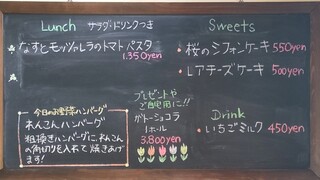 Lunch サラダ・ドリンクつき
なすとモッツァレラのトマトパスタ
1.350yen
今日のお豆腐ハンバーグ
れんこんハンバーグ
粗挽きハンバーグに、れんこん
の角切りを入れて焼きあげ
ます!
プレゼントや
ご自宅用に!!
ガトーショコラ
1ホール
3.800yen
Sweets
・桜のシフォンケーキ 550yen
・レアチーズケーキ 500yen
Drink
・いちごミルク 450yen